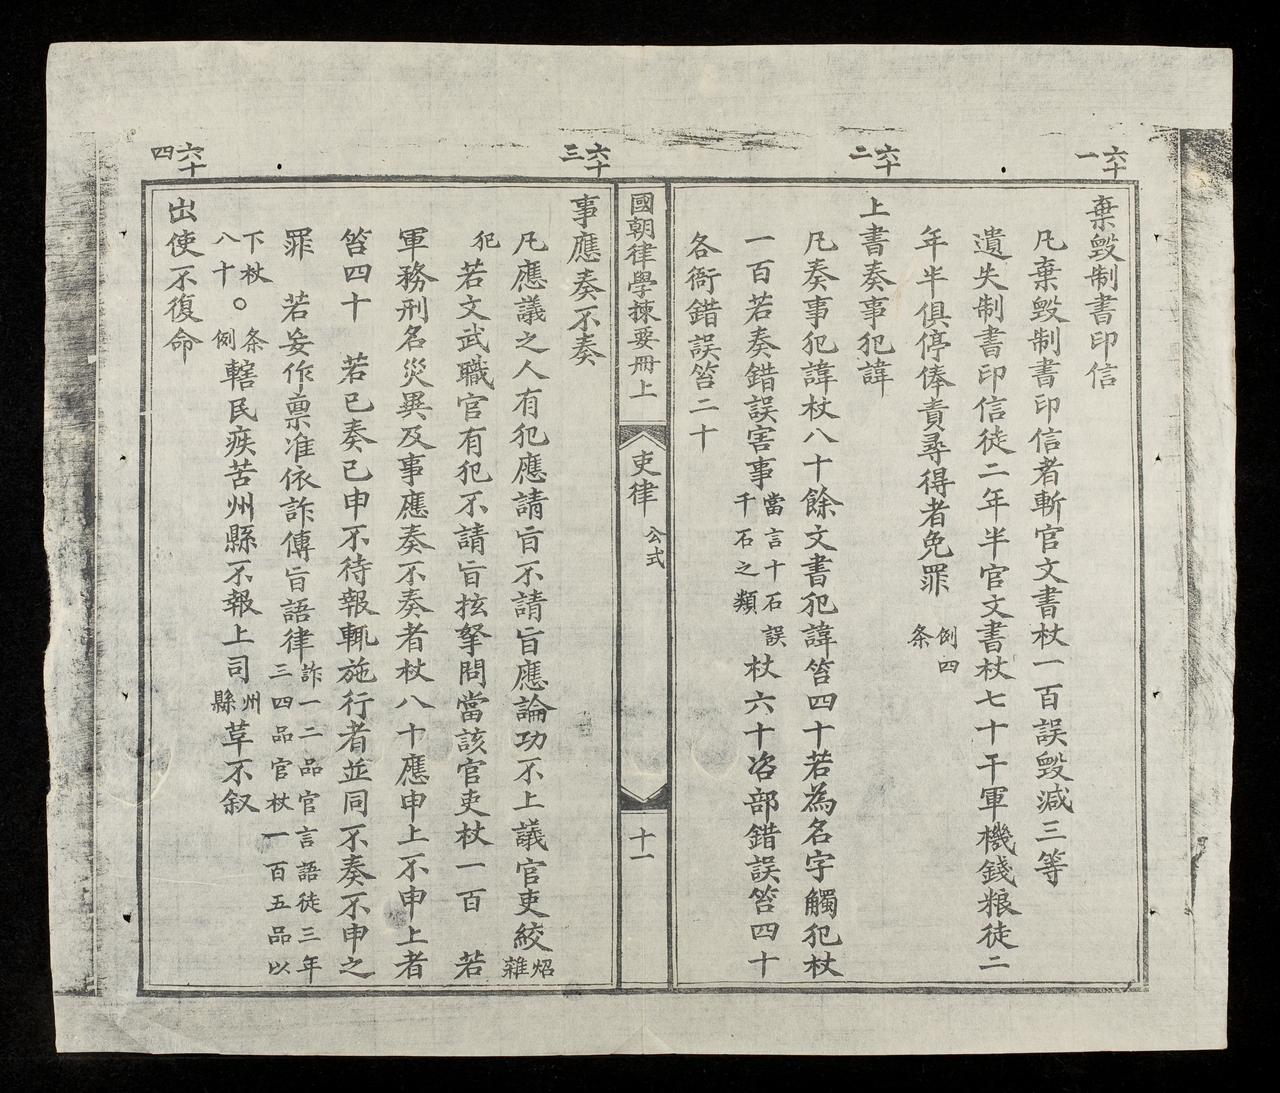 六十一
棄毀制書印信
凡棄毀制書印信者斬官文書杖一百誤毀減三等
遺失制書印信徒二年半官文書杖七十干軍機錢粮徒二
年半俱停俸責尋得者免罪 例四条
六十二
上書奏事犯諱
凡奏事犯諱杖八十餘文書犯諱笞四十若為名字觸犯杖
一百若奏錯誤害事 當言十石誤千石之類 杖六十咨部錯誤笞四十
各衙錯誤笞二十
國朝律學揀要冊上 吏律 公式 十一
六十三
事應奏不奏
凡應議之人有犯應請旨不請旨應論功不上議官吏絞 炤雜
犯 若文武職官有犯不請旨拡拏問當該官吏杖一百 若
軍務刑名災異及事應奏不奏者杖八十應申上不申上者
笞四十 若已奏已申不待報輒施行者並同不奏不申之
罪 若妄作禀准依詐傳旨語律 詐一二品官言語徒三年三四品官杖一百五品以
下杖八十○ 条例 轄民疾苦州縣不報上司 州縣 草不叙
六十四
出使不復命